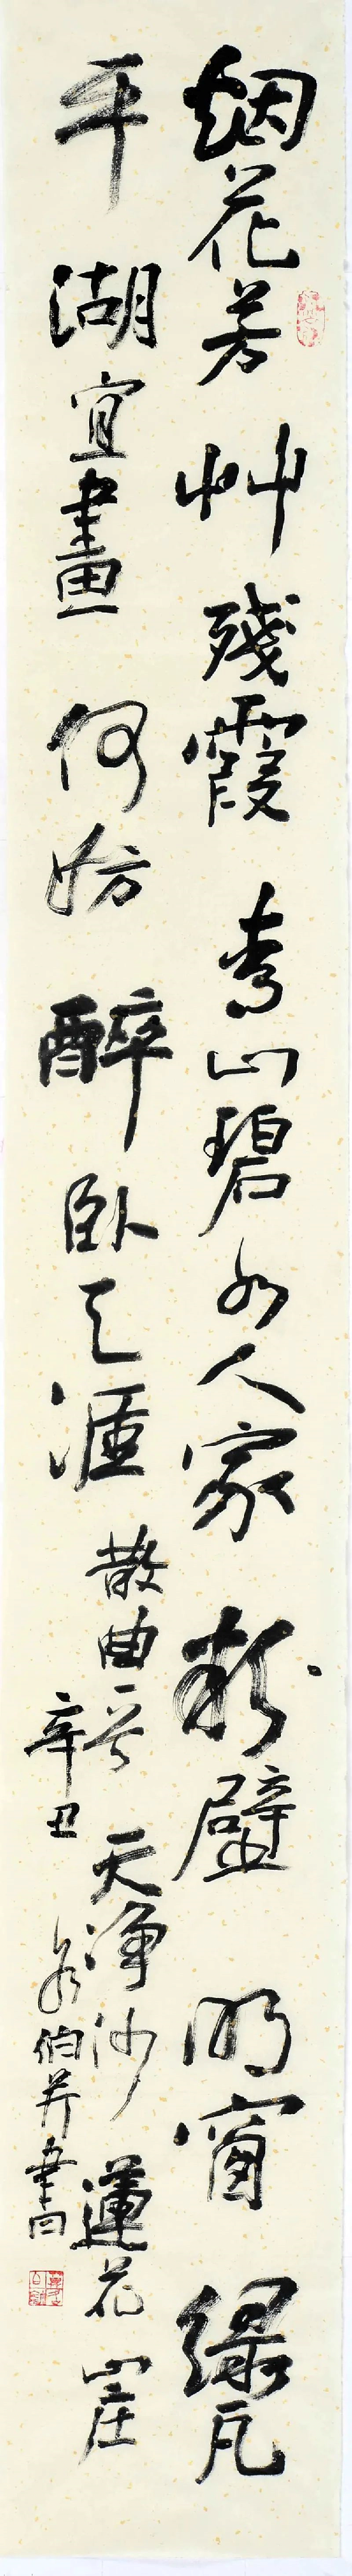 烟花芳艸残霞青山碧水人家粉壁明窗绿瓦
平湖宜畫何妨醉卧天涯
散曲一首天净沙蓮花山庄
辛丑伯并書